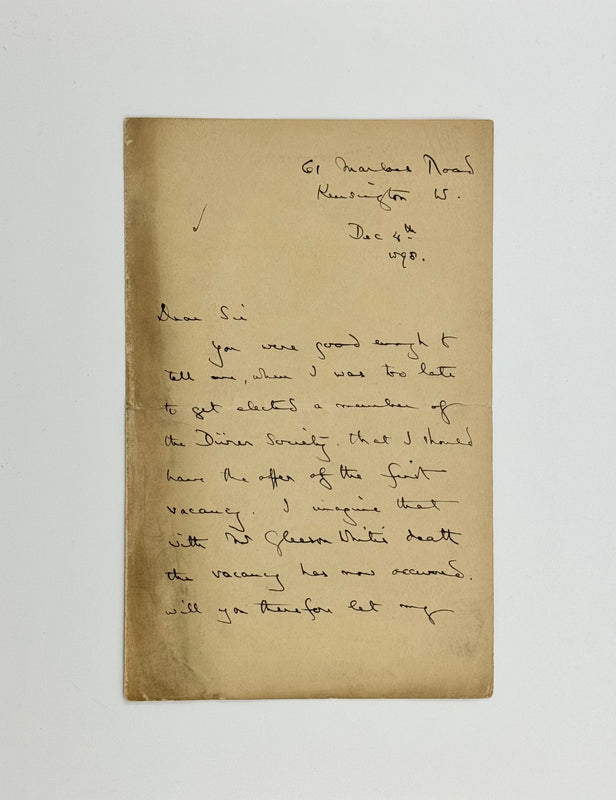 61 Marloes Road
Kensington W.
Dec 4th
1898.
Dear Sir
You were good enough to
tell me, when I was too late
to get elected a member of
the Dürer Society, that I should
have the offer of the first
vacancy. I imagine that
with Mr Gleeson White's death
the vacancy has now occurred.
Will you therefore let my